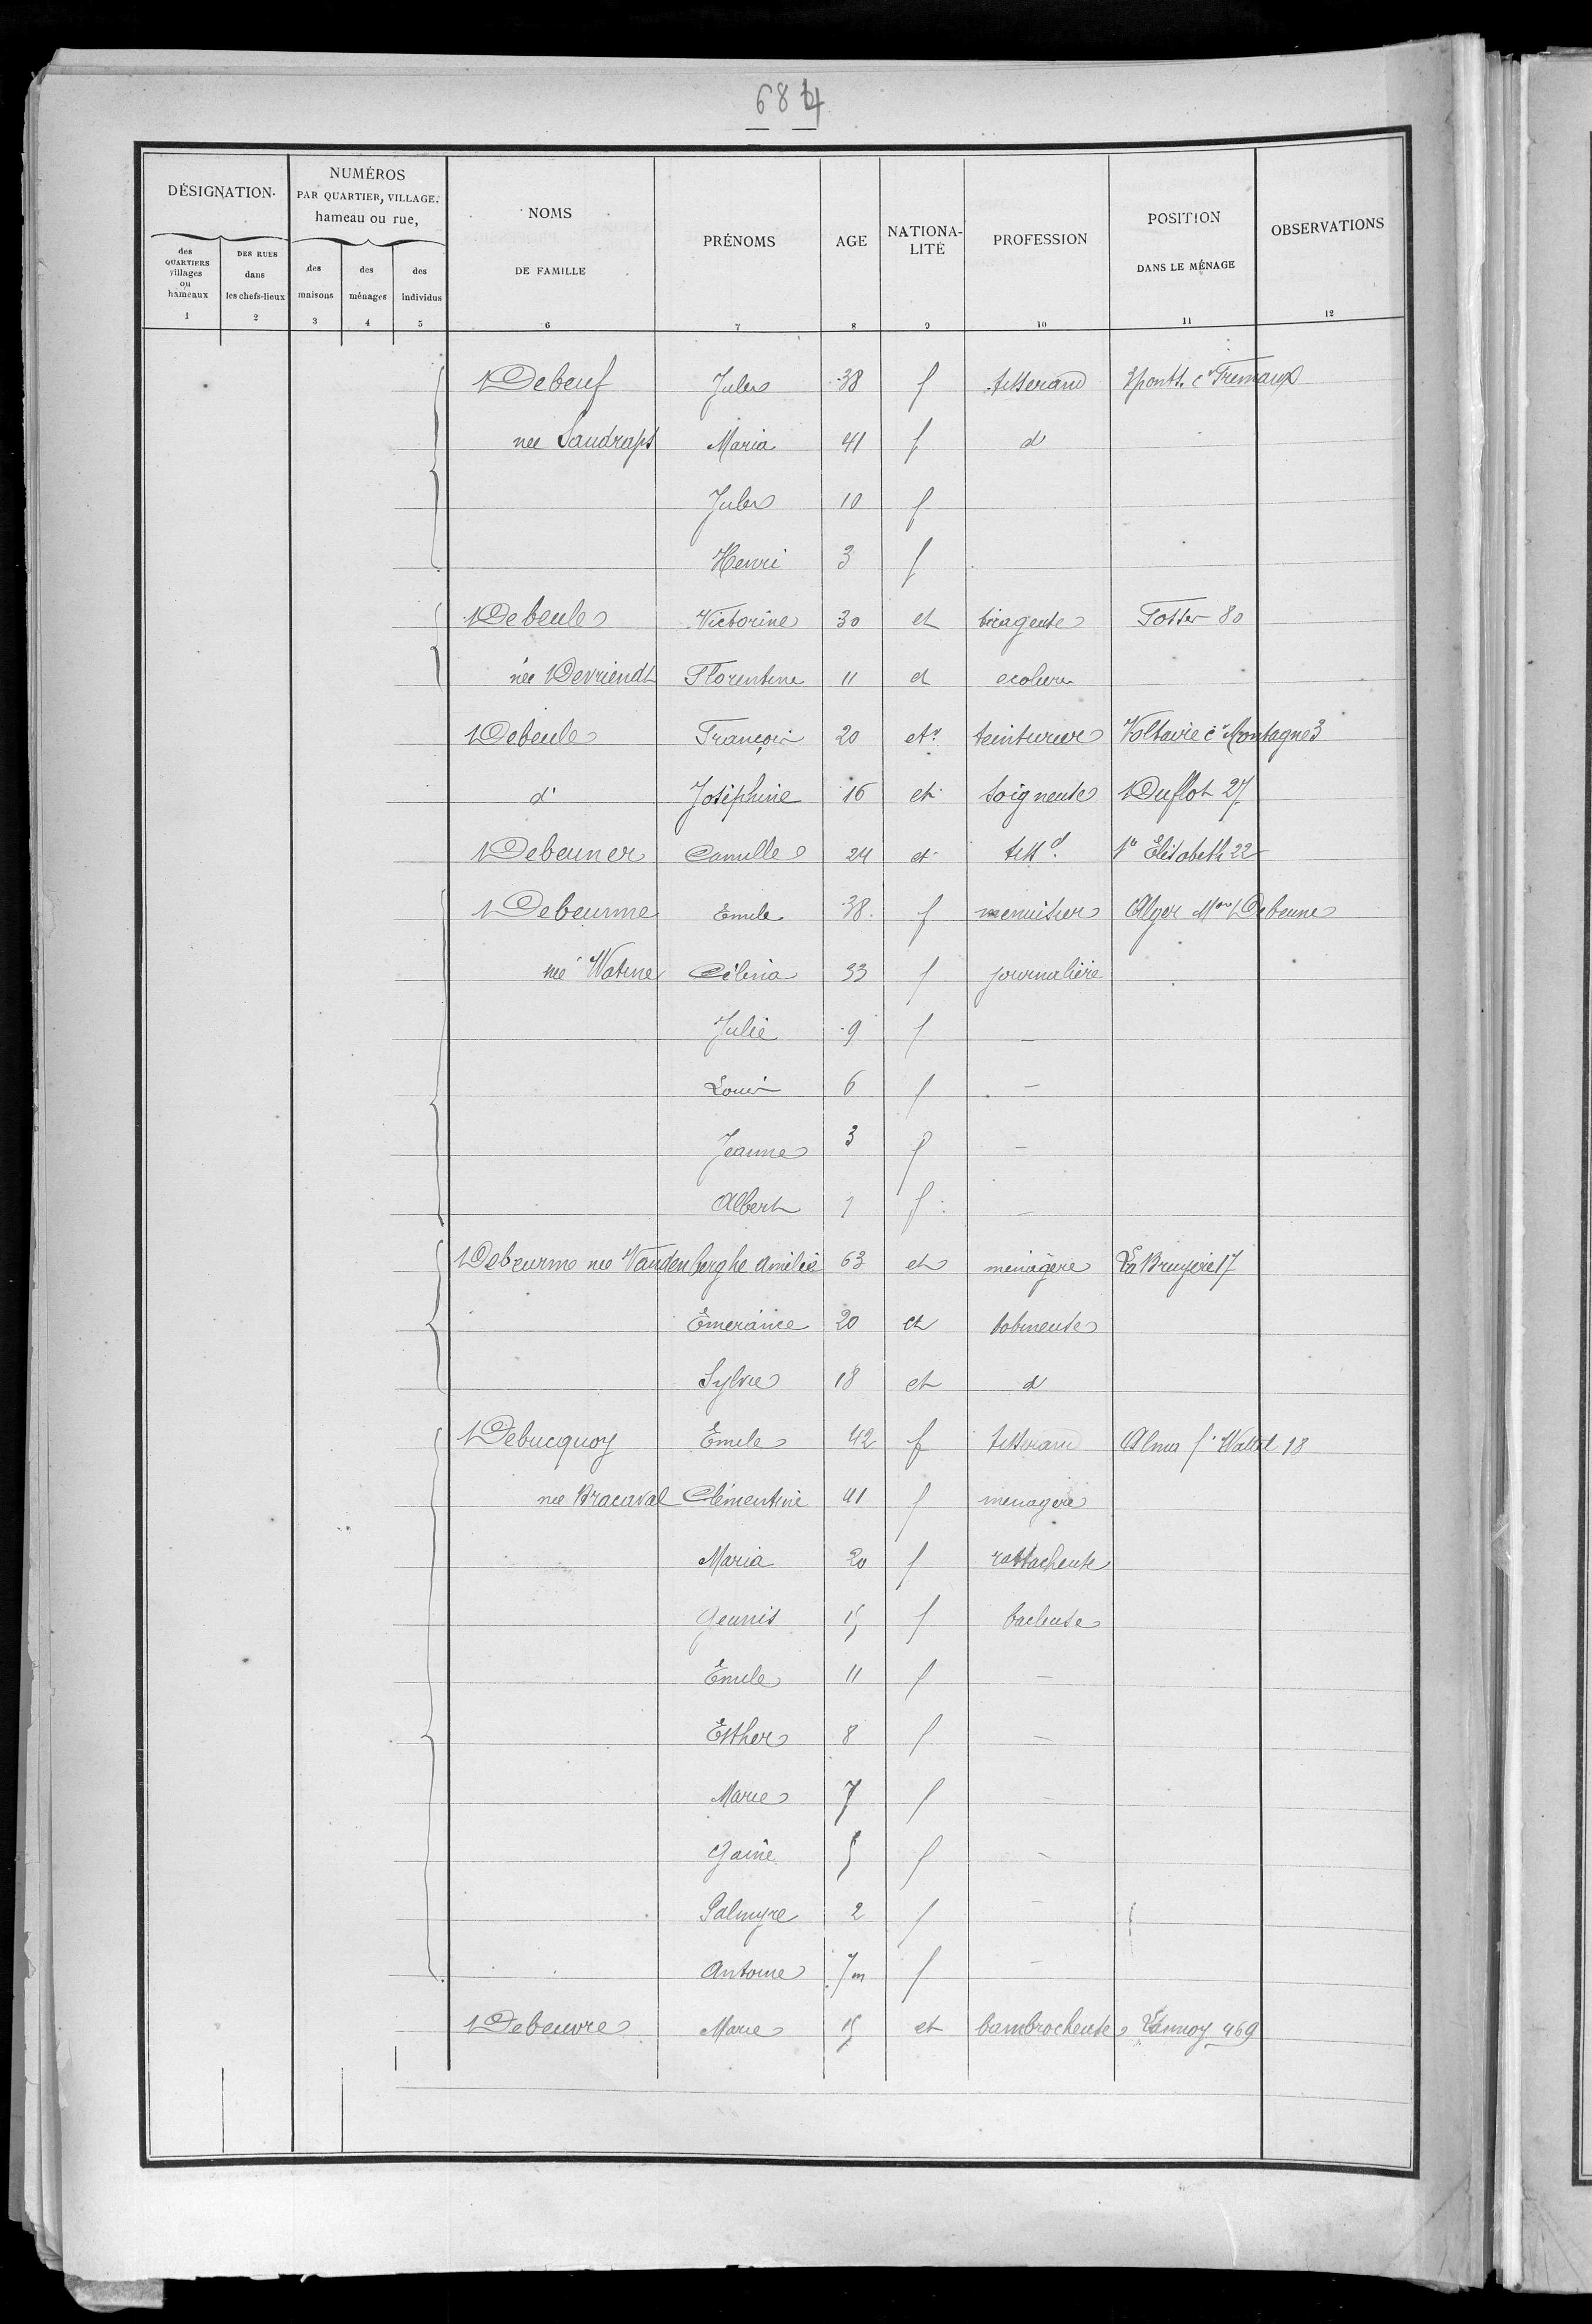 684
DÉSIGNATION.
NUMÉROS
PAR QUARTIER, VILLAGE.
hameau ou rue,
des QUARTIERS villages ou hameaux
DES RUES dans les chefs-lieux
des maisons
des ménages
des individus
NOMS
DE FAMILLE
PRÉNOMS
AGE
NATIONA-
LITÉ
PROFESSION
POSITION
DANS LE MÉNAGE
OBSERVATIONS
1 2 3 4 5 6 7 8 9 10 11 12
Debeuf Jules 38 f tisserand 3 ponts cr Fremaux
née Saudrapt Maria 41 f d
Jules 10 f
Henri 3 f
Debeule Victorine 30 et Fosses 80
née Devriendt Florentine 11 et ecoliere
Debeule François 20 etr teinturier Voltaire cr Montagne 3
do Joséphine 16 et soigneuse Duflot 27
Debeuner Camille 24 et tissd. Ste Elisabeth 22
Debeurme Emile 38 f menuisier Alger Mon Debeurme
née Watine Célina 33 f journalière
Julie 9 f –
Louis 6 f –
Jeanne 3 f –
Albert 1 f –
Debeurme née Vandenberghe Amélie 63 et ménagère La Bruyère 17
Émerance 20 et bobineuse
Sylvie 18 et d
Debucquoy Emile 42 f tisserand Alma f. Wattel 18
née Bracaval Clémentine 41 f menagère
Maria 20 f rattacheuse
15 f bacleuse
Emile 11 f –
Esther 8 f –
Marie 7 f –
5 f –
Palmyre 2 f –
Antoine 7m f –
Debeuvre Marie 15 et bambrocheuse Lannoy 469